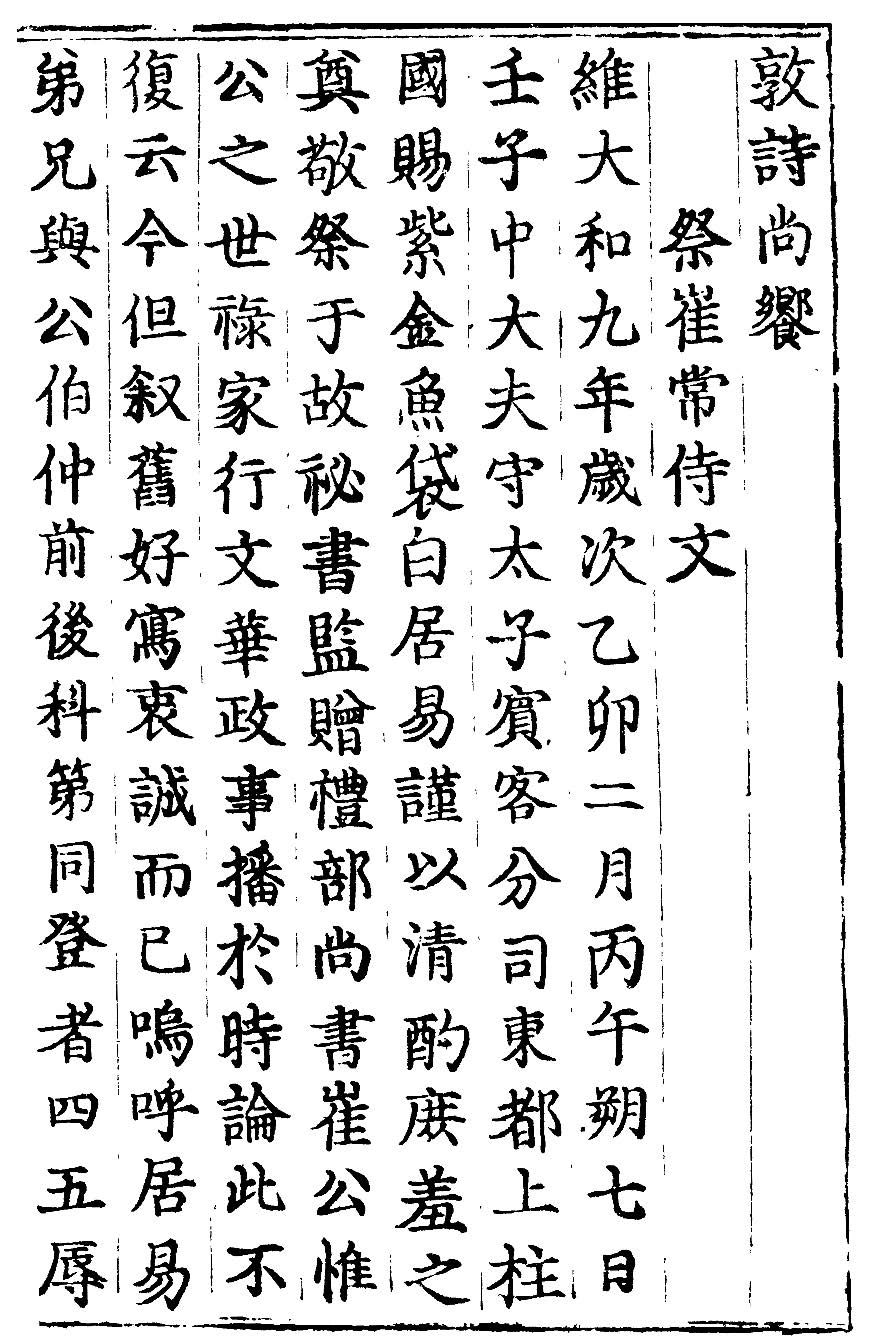 敦詩尚饗
祭崔常侍文
維大和九年歲次乙卯二月丙午朔七日
壬子中大夫守太子賔客分司東都上柱
國賜紫金魚袋白居易謹以清酌庻羞之
奠敬祭于故祕書監贈禮部尚書崔公惟
公之世祿家行文華政事播於時論此不
復云今但叙舊好寫衷誠而已嗚呼居易
弟兄與公伯仲前後科第同登者四五辱